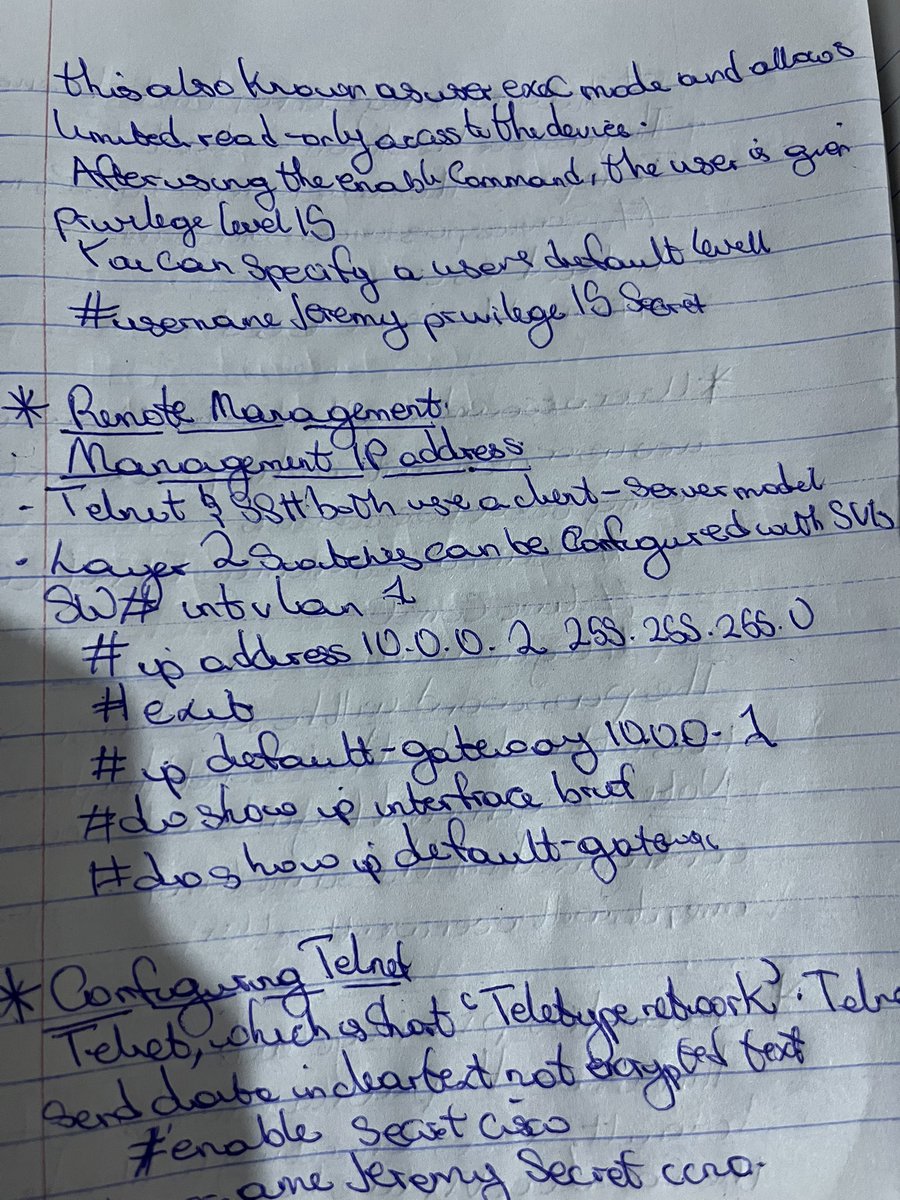 this also known as user exec mode and allows
limited read-only acass to the device.
After using the enable Command, the user is given
privilege level 15
You can specify a users default levell
#username Jeremy privilege 15 Secret
* Remote Management.
Management IP address
- Telnet & SSH both use a client-server model
- Layer 2 Switches can be Configured with SVIs
SW# int vlan 1
# ip address 10.0.0.2 255.255.255.0
# exit
# ip default-gateway 10.0.0.1
#do show ip interface brief
#do show ip default-gateway
* Configuring Telnet
Telnet, which is short 'Teletype network'. Telne
Send data in cleartext not encrypted text
#enable Secret cisco
ame Jeremy Secret ccna.